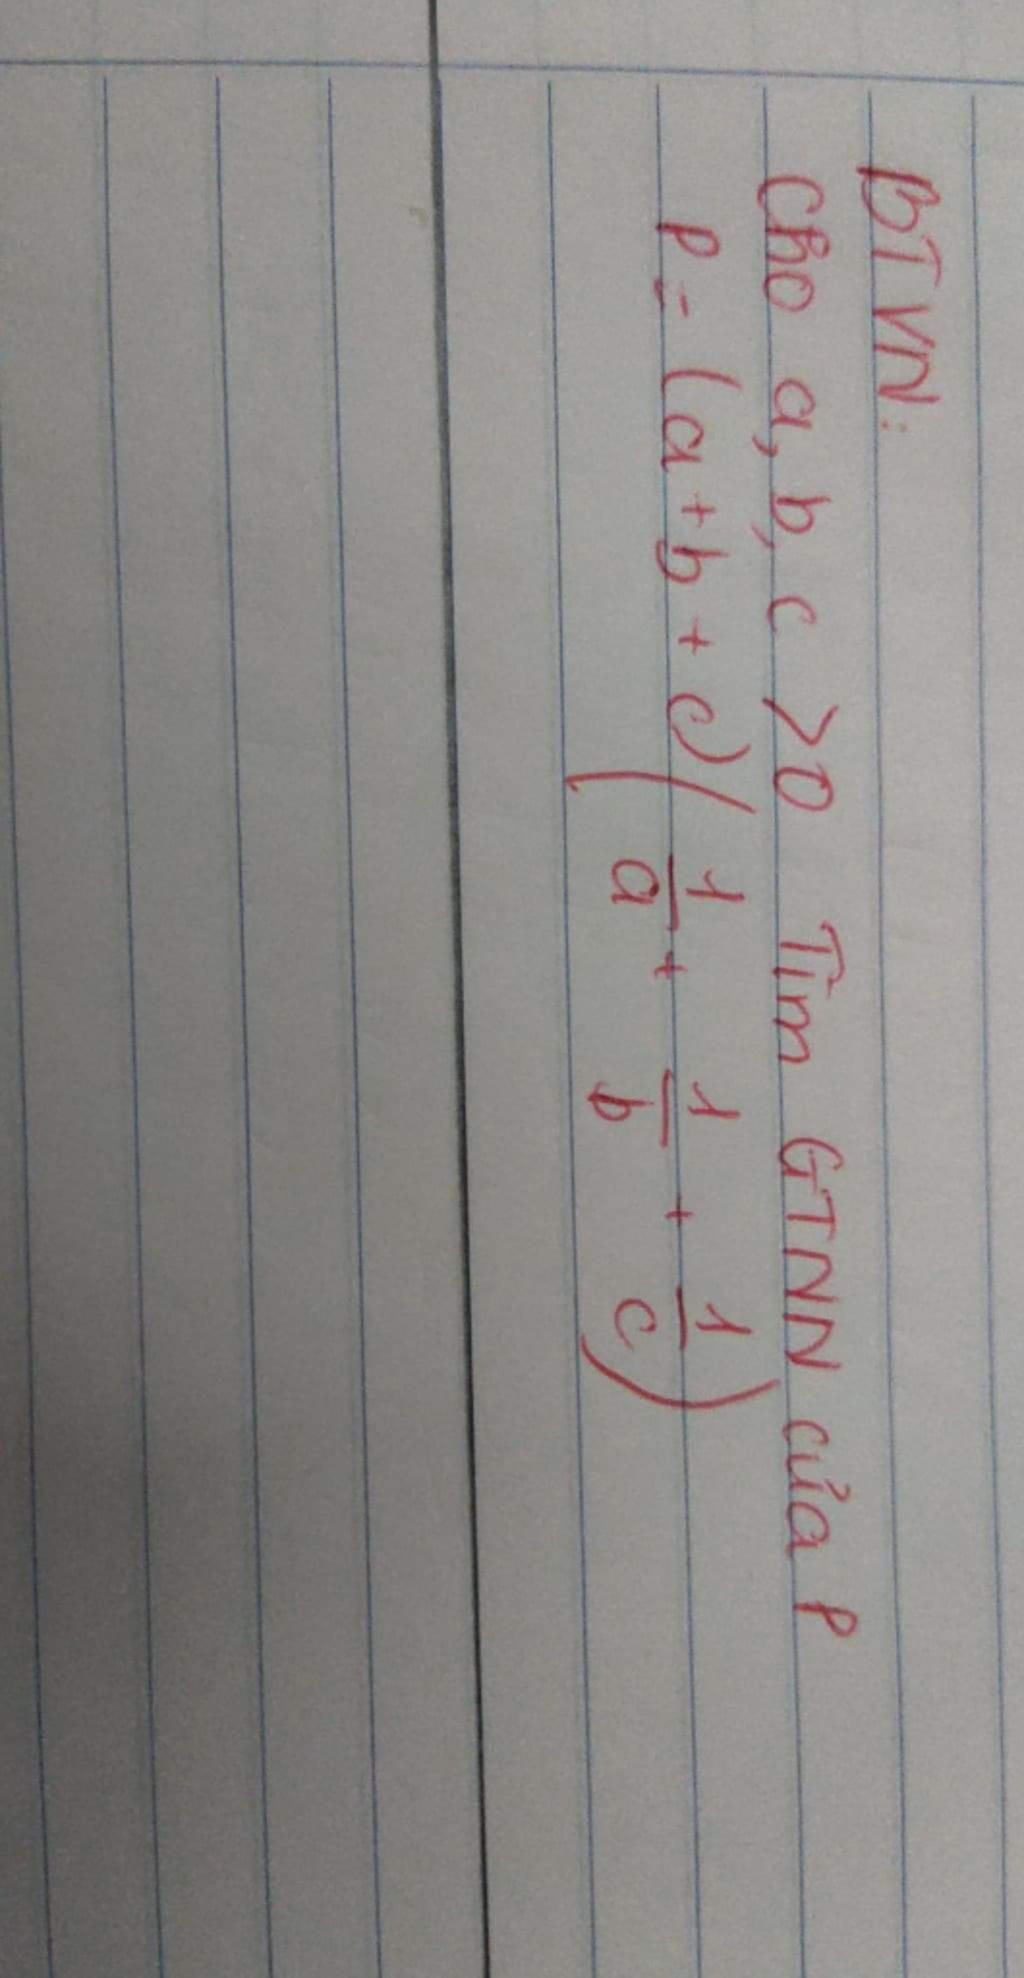 BTVN:
Cho a, b, c >0 Tìm GTNN của P
P = (a+b+c)(1/a + 1/b + 1/c)